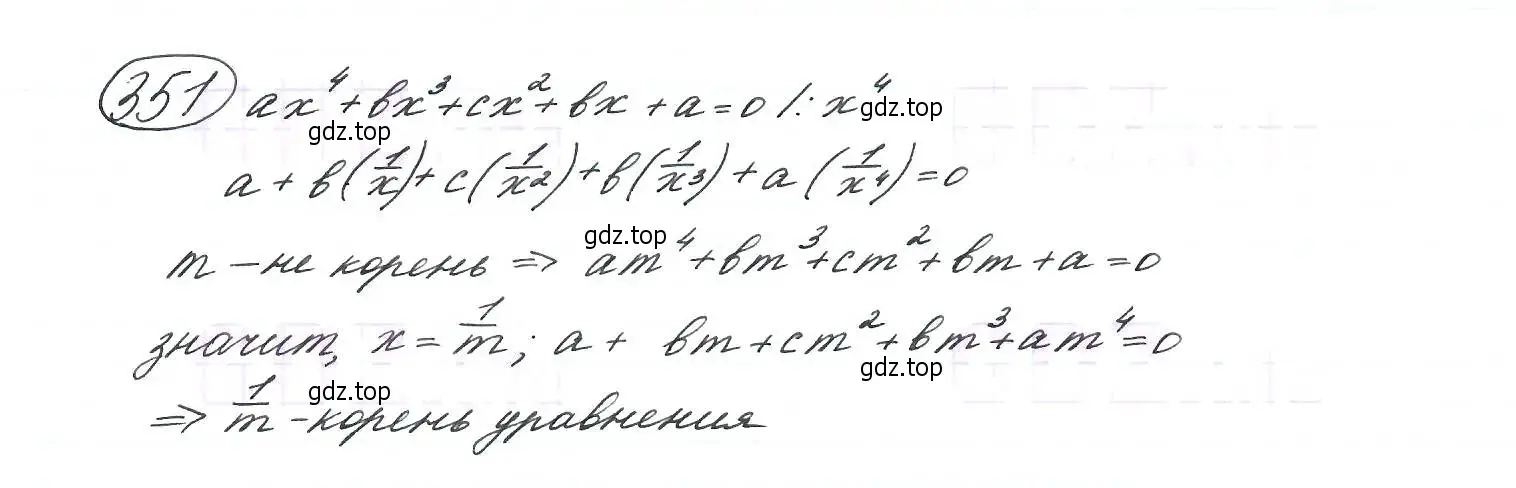 351 ax⁴+bx³+cx²+bx+a=0 /: x⁴
gdz.top
gdz.top
a+b(1/x)+c(1/x²)+b(1/x³)+a(1/x⁴)=0
gdz.top
m – не корень => am⁴+bm³+cm²+bm+a=0
значит, x=1/m; a+ bm+cm²+bm³+am⁴=0
gdz.top
gdz.top
=> 1/m – корень уравнения